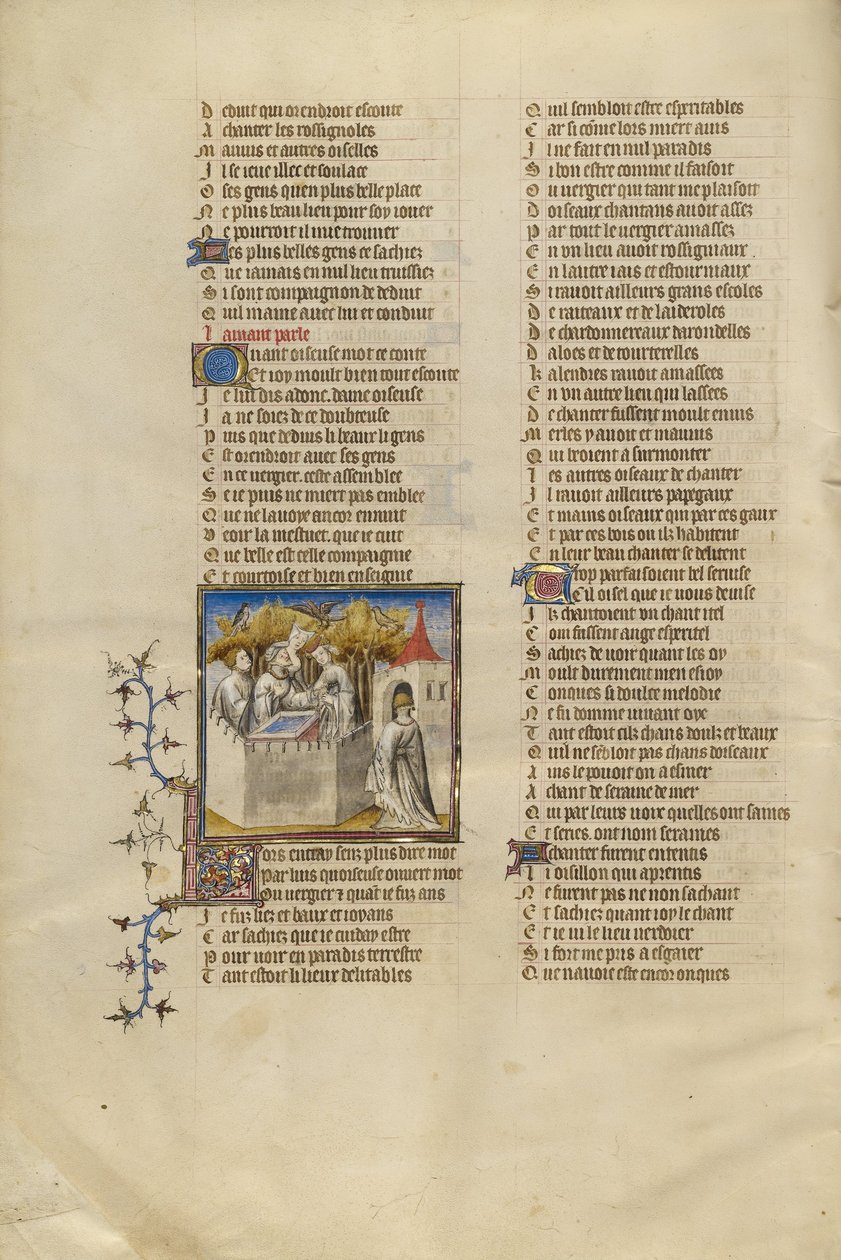 Deduit qui orendroit escoute
A chanter les rossignoles
Mauuis et autres oiselles
Il se ieue illec et soulace
O ses gens quen plus belle place
Ne plus beau lieu pour soy iouer
Ne pourroit il mie trouuer
Les plus belles gens ce sachiez
Que iamais en nul lieu truissiez
Si sont compaignon de deduit
Quil maine auec lui et conduit
Lamant parle
Quant oiseuse mot ce conte
Et ioy moult bien tout escoute
Je lui dis adonc. dame oiseuse
Ja ne soiez de ce doubteuse
Puis que deduis li beaux li gens
Est orendroit auec ses gens
En ce vergier. ceste assemblee
Se ie puis ne miert pas emblee
Que ne la uoye encor ennuit
Veoir la mestuet. que ie cuit
Que belle est celle compaignie
Et courtoise et bien enseignie
Lors entray senz plus dire mot
Par luis quoiseuse ouuert mot
Ou vergier ⁊ quāt ie fuz ans
Je fuz liez et baux et ioyans
Car sachiez que ie cuiday estre
Pour uoir en paradis terrestre
Tant estoit li lieux delitables
Quil sembloit estre esperitables
Car si cōme lors miert auis
Il ne fait en nul paradis
Si bon estre comme il faisoit
Ou uergier qui tant me plaisoit
Doiseaux chantans auoit assez
Par tout le uergier amassez
En vn lieu auoit rossigniaux
En lautre iais et estourniaux
Si rauoit ailleurs grans escoles
De roiteaux et de laideroles
De chardonnereaux darondelles
Daloes et de tourterelles
Kalendres rauoit amassees
En vn autre lieu qui lassees
De chanter fussent moult enuis
Merles y auoit et mauuis
Qui beoient a surmonter
Les autres oiseaux de chanter
Il rauoit ailleurs papegaux
Et mains oiseaux qui par ces gaux
Et par ces bois ou ilz habitent
En leur beau chanter se delitent
Trop parfaisoient bel seruise
Cil oisel que ie vous deuise
Ilz chantoient vn chant itel
Com fussent ange esperitel
Sachiez de uoir quant les oy
Moult durement men esioy
Conques si doulce melodie
Ne fu domme uiuant oye
Tant estoit cilz chans doulz et beaux
Quil ne sēbloit pas chans doiseaux
Ains le pouoit on a esmer
A chant de seraine de mer
Qui par leurs uoix quelles ont saines
Et series. ont nom seraines
A chanter furent ententis
Li oisillon qui aprentis
Ne furent pas ne non sachant
Et sachiez quant ioy le chant
Et ie ui le lieu uerdoier
Si fort me pris a esgaier
Que nauoie este encor onques